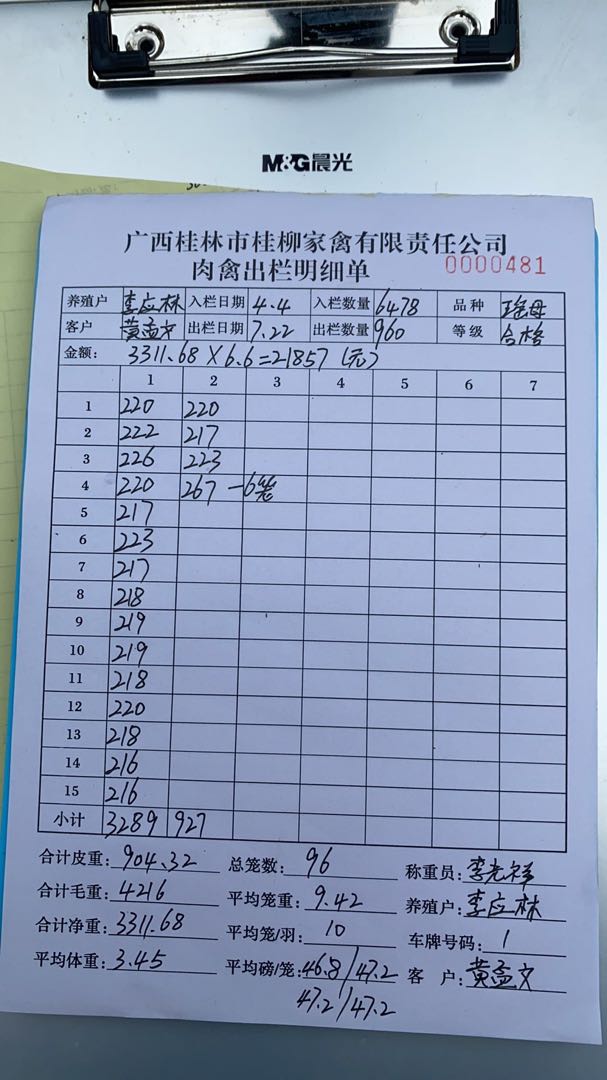 M&G晨光
广西桂林市桂柳家禽有限责任公司
肉禽出栏明细单 0000481
养殖户 李应林 入栏日期 4.4 入栏数量 6478 品种 瑶母
客户 黄孟文 出栏日期 7.22 出栏数量 960 等级 合格
金额: 3311.68×6.6=21857(元)
1 2 3 4 5 6 7
1 220 220
2 222 217
3 226 223
4 220 267 -6笼
5 217
6 223
7 217
8 218
9 219
10 219
11 218
12 220
13 218
14 216
15 216
小计 3289 927
合计皮重: 904.32 总笼数: 96 称重员: 李光祥
合计毛重: 4216 平均笼重: 9.42 养殖户: 李应林
合计净重: 3311.68 平均笼/羽: 10 车牌号码: 1
平均体重: 3.45 平均磅/笼: 46.8/47.2 客户: 黄孟文
47.2/47.2